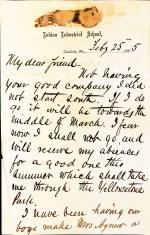 Indian Industrial School,
Carlisle, Pa., Feby 25th 1885
My dear friend.
Not having
your good company I did
not start south. If I do
go it will be towards the
middle of March. I fear
now I shall not go and
will reserve my absences
for a good one this
summer which shall take
me through the Yellowstone
Park.
I have been having our
boys make